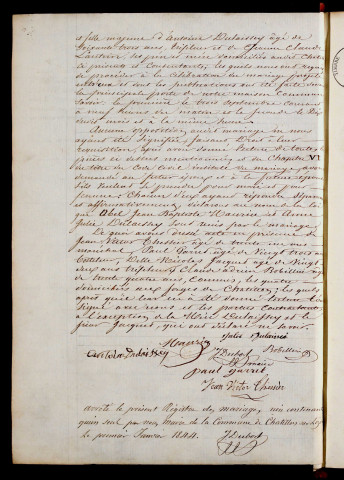 et fille majeure d'Antoine Dulaissey âgé de
soixante trois ans, tréfileur et de Jeanne Claude
Lautrier, ses père et mère domiciliés audit Chatillon
ici présents et consentants, lesquels nous ont requis
de procéder à la célébration du mariage projeté
entre eux et dont les publications ont été faites devant
la principale porte de notre maison Commune
savoir: la première le trois septembre courant
à neuf heures du matin et la seconde le dix
mois à la même heure.
Aucune opposition audit mariage ne nous
ayant été signifiée, faisant droit à leur
réquisition, après avoir donné lecture de toutes les
pièces ci dessus mentionnées et du Chapitre VI
du titre du Code civil intitulé du mariage, avons
demandé au futur époux et à la future épouse
s'ils veulent se prendre pour mari et pour
femme; chacun d'eux ayant répondu séparément
et affirmativement, déclarons au nom de la loi
que Abel Jean Baptiste Maurice et Anne
Julie Dulaissey sont unis par le mariage.
De quoi avons dressé acte en présence de
Jean Victor âgé de trente un ans
maréchal, Paul Garret âgé de vingt trois ans
Nicolas Jacquot âgé de vingt
deux ans tréfileur, Claude Robellin âgé
de trente quatre ans, Commis, les quatre
domiciliés aux forges de Chatillon; lesquels
après qu'il leur en a été donné lecture l'ont
signé avec nous et les parties contractantes
à l'exception de la Mère Dulaissey et le
sieur Jacquot, qui ont déclaré ne savoir.
Julie Dulaissey
Maurice
Dubost Robellin
antoine Dulaissey
paul garret
Jean Victor
arrêté le présent Registre des mariages, contenant
qu'un seul par nous Maire de la Commune de Chatillon
le premier Janvier 1844.
Dubost